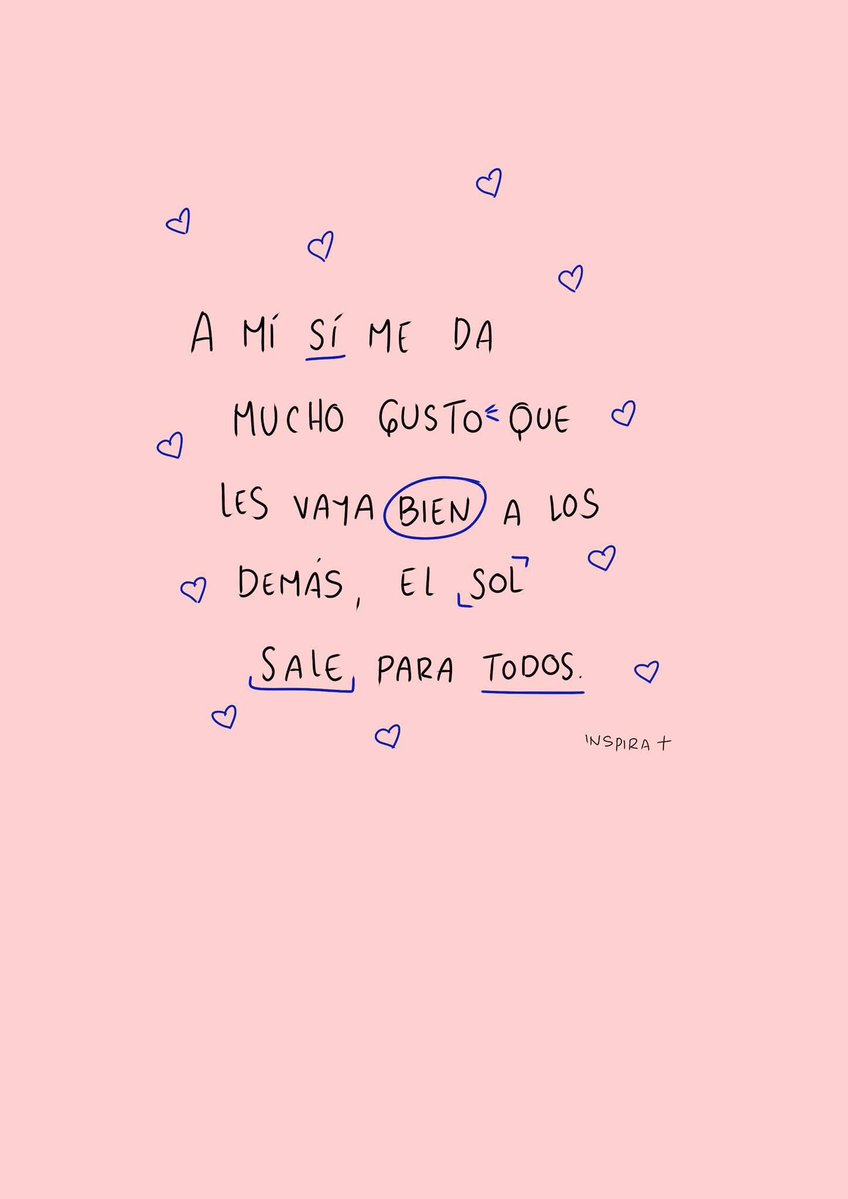 A MÍ SÍ ME DA
MUCHO GUSTO QUE
LES VAYA BIEN A LOS
DEMÁS, EL SOL
SALE PARA TODOS.
INSPIRA +